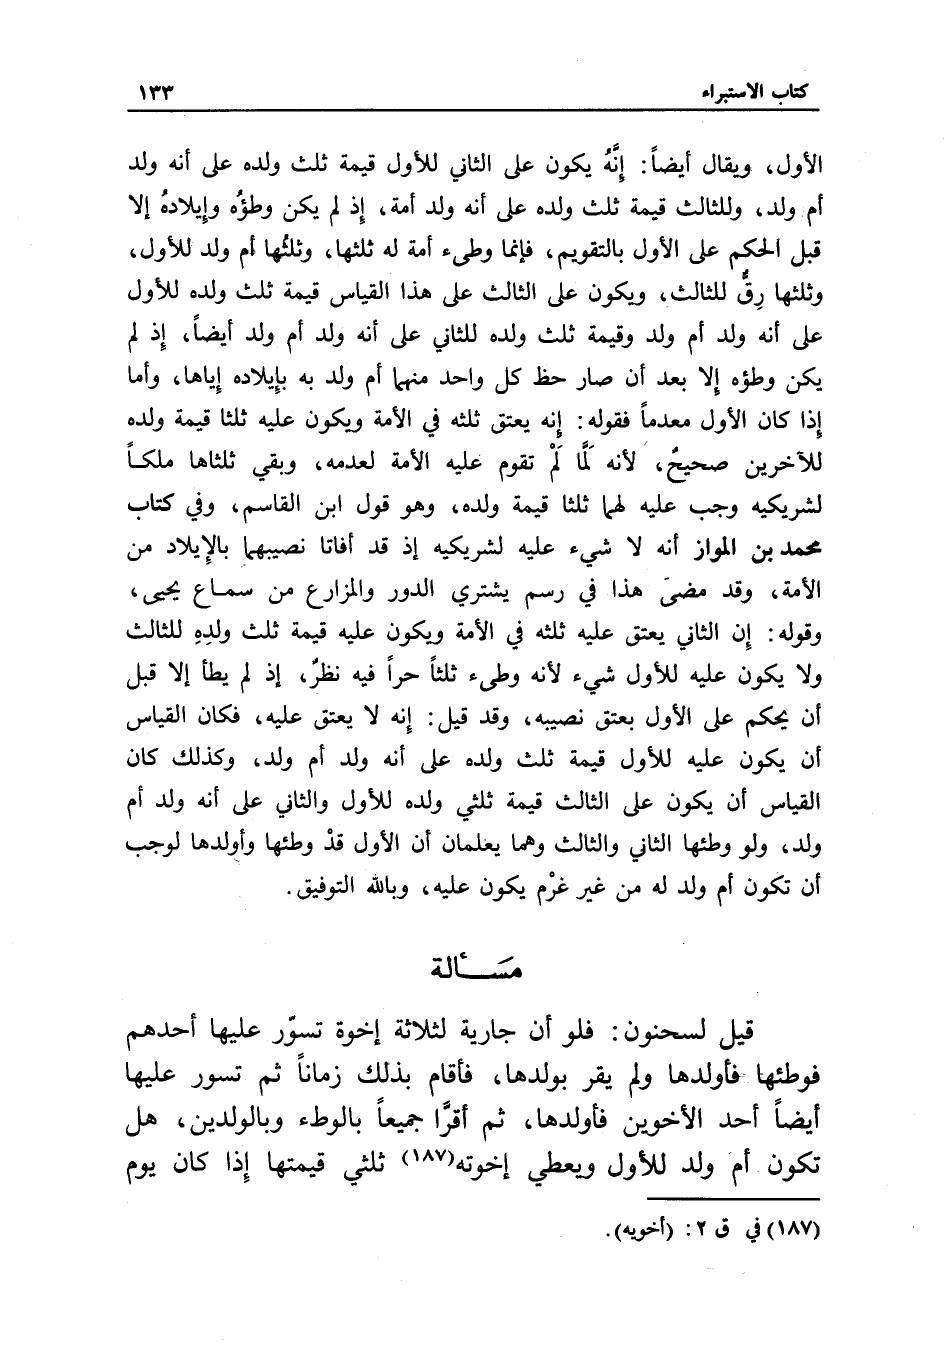 كتاب الاستبراء ١٣٣
الأول، ويقال أيضاً: إنَّهُ يكون على الثاني للأول قيمة ثلث ولده على أنه ولد
أم ولد، وللثالث قيمة ثلث ولده على أنه ولد أمة، إذ لم يكن وطؤُه وإيلادهُ إلا
قبل الحكم على الأول بالتقويم، فإنما وطىء أمة له ثلثها، وثلثُها أم ولد للأول،
وثلثها رِقٌّ للثالث، ويكون على الثالث على هذا القياس قيمة ثلث ولده للأول
على أنه ولد أم ولد وقيمة ثلث ولده للثاني على أنه ولد أم ولد أيضاً، إذ لم
يكن وطؤه إلا بعد أن صار حظ كل واحد منهما أم ولد به بإيلاده إياها، وأما
إذا كان الأول معدماً فقوله: إنه يعتق ثلثه في الأمة ويكون عليه ثلثا قيمة ولده
للآخرين صحيحٌ، لأنه لَمَّا لَمْ تقوم عليه الأمة لعدمه، وبقي ثلثاها ملكاً
لشريكيه وجب عليه لهما ثلثا قيمة ولده، وهو قول ابن القاسم، وفي كتاب
محمد بن المواز أنه لا شيء عليه لشريكيه إذ قد أفاتا نصيبهما بالإيلاد من
الأمة، وقد مضىَ هذا في رسم يشتري الدور والمزارع من سماع يحيى،
وقوله: إن الثاني يعتق عليه ثلثه في الأمة ويكون عليه قيمة ثلث ولدِهِ للثالث
ولا يكون عليه للأول شيء لأنه وطىء ثلثاً حراً فيه نظرٌ، إذ لم يطأ إلا قبل
أن يحكم على الأول بعتق نصيبه، وقد قيل: إنه لا يعتق عليه، فكان القياس
أن يكون عليه للأول قيمة ثلث ولده على أنه ولد أم ولد، وكذلك كان
القياس أن يكون على الثالث قيمة ثلثي ولده للأول والثاني على أنه ولد أم
ولد، ولو وطئها الثاني والثالث وهما يعلمان أن الأول قدْ وطئها وأولدها لوجب
أن تكون أم ولد له من غير غرْم يكون عليه، وبالله التوفيق.
مَسَــألة
قيل لسحنون: فلو أن جارية لثلاثة إخوة تسوّر عليها أحدهم
فوطئها فأولدها ولم يقر بولدها، فأقام بذلك زماناً ثم تسور عليها
أيضاً أحد الأخوين فأولدها، ثم أقرَّا جميعاً بالوطء وبالولدين، هل
تكون أم ولد للأول ويعطي إخوته(١٨٧) ثلثي قيمتها إذا كان يوم
(١٨٧) في ق ٢: (أخويه).